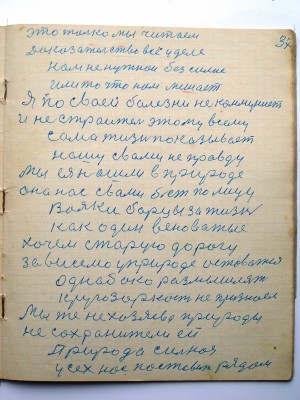 37
это толко мы читаем
Доказателство всё у деле
Нам не нужной без силие
или то что нам мешает
Я по своей болезни не коммунист
и не страшен этому всему
сама жизнь показывает
нашу свами не правду
Мы ея нашли в природе
она нас свами бєт по лицу
Вояки борцы за жизнь
как один веноватые
хочем старую дорогу
зависемо у природе остоватся
однабоко размышлят
кругозоркост не признаем
Мы же не хозяева природы
не сохранители ей
Природа силная
усех нас поставит рядом